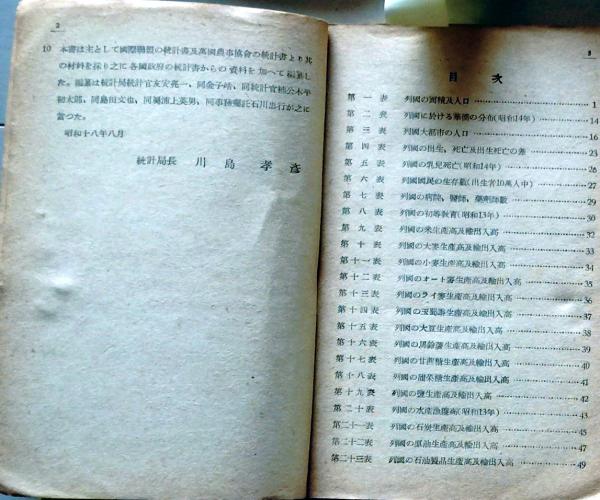 2
10 本書は主として國際聯盟の統計書及萬國農事協會の統計書より其
の材料を採り之に各國政府の統計書からの資料を加へて編纂し
た。編纂は統計局統計官友安亮一、同金子靖、同統計官補公木平
初太郎、同島田文也、同浦上英男、同事務囑託石川忠行が之に
當つた。
昭和十八年八月
統計局長 川島孝彦
3
目次
第一表 列國の面積及人口 1
第二表 列國に於ける華僑の分布(昭和14年) 14
第三表 列國大都市の人口 16
第四表 列國の出生,死亡及出生死亡の差 23
第五表 列國の乳兒死亡(昭和14年) 26
第六表 列國國民の生存數(出生者10萬人中) 27
第七表 列國の病院,醫師,藥劑師數 29
第八表 列國の初等教育(昭和13年) 30
第九表 列國の米生產高及輸出入高 32
第十表 列國の大麥生產高及輸出入高 33
第十一表 列國の小麥生產高及輸出入高 34
第十二表 列國のオート麥生產高及輸出入高 35
第十三表 列國のライ麥生產高及輸出入高 36
第十四表 列國の玉蜀黍生產高及輸出入高 37
第十五表 列國の大豆生產高及輸出入高 38
第十六表 列國の馬鈴薯生產高及輸出入高 39
第十七表 列國の甘蔗糖生產高及輸出入高 40
第十八表 列國の甜菜糖生產高及輸出入高 41
第十九表 列國の鹽生產高及輸出入高 42
第二十表 列國の水產漁獲高(昭和13年) 44
第二十一表 列國の石炭生產高及輸出入高 45
第二十二表 列國の原油生產高及輸出入高 47
第二十三表 列國の石油製品生產高及輸出入高 49